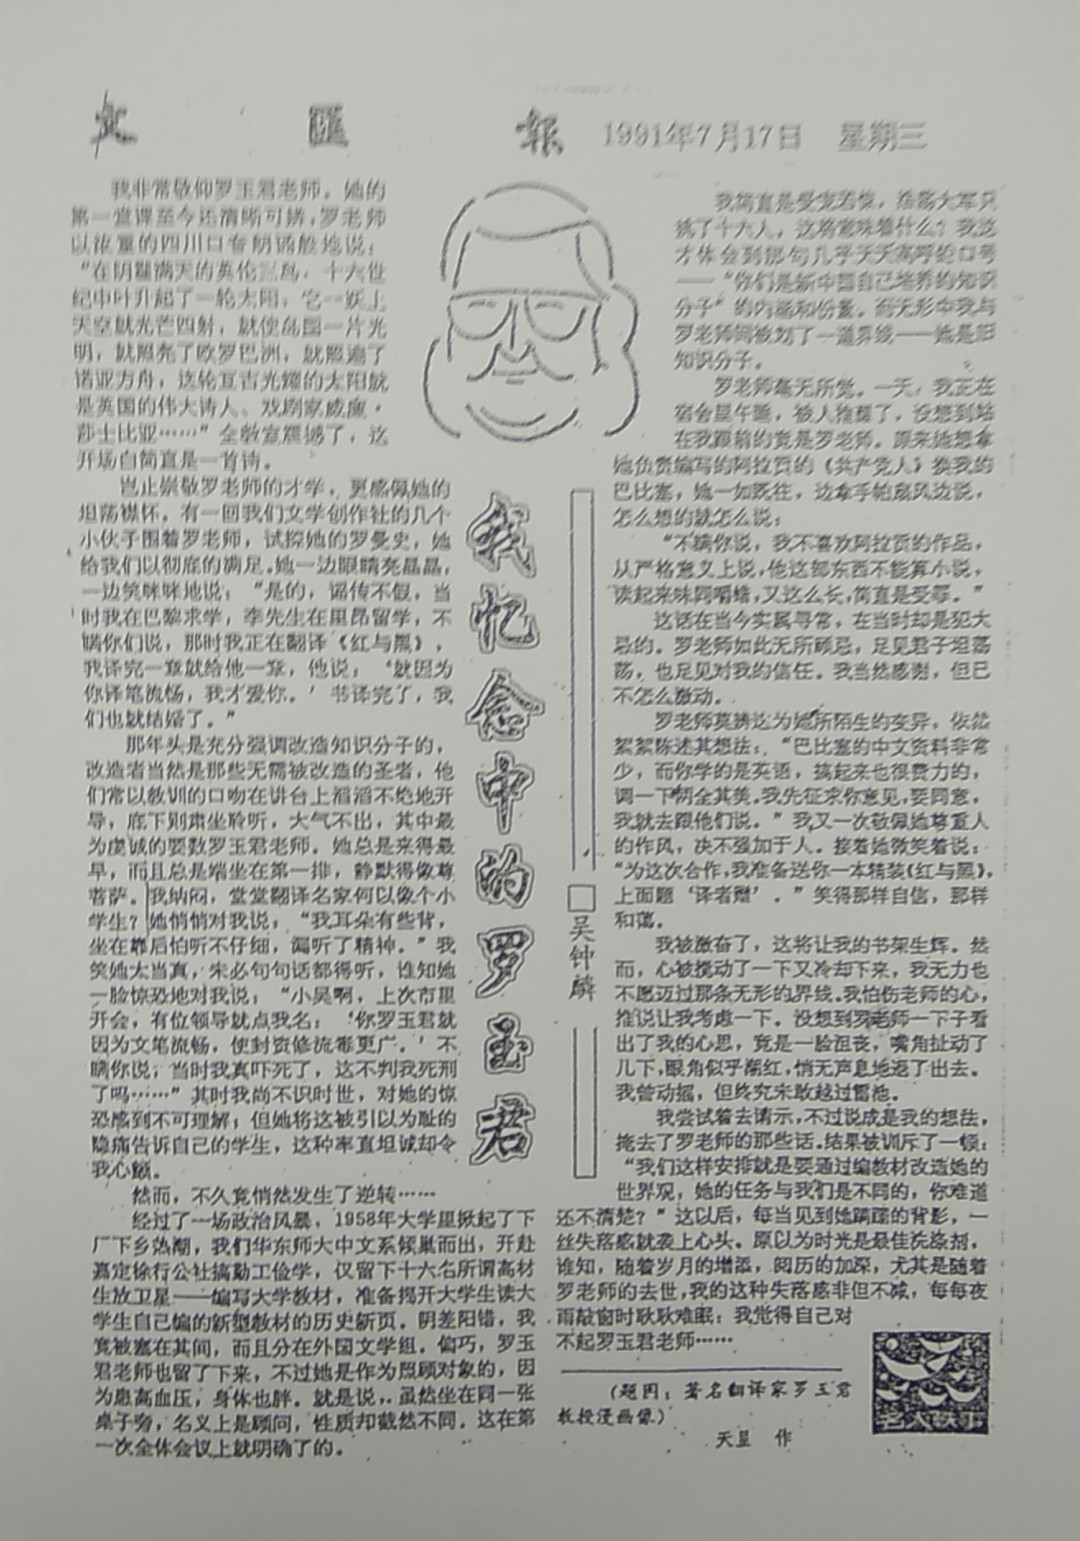 文 匯 报 1991年7月17日 星期三
我忆念中的罗玉君
□吴钟麟
我非常敬仰罗玉君老师。她的
第一堂课至今还清晰可辨,罗老师
以浓重的四川口音朗诵般地说：
“在阴霾满天的英伦三岛，十六世
纪中叶升起了一轮太阳，它一跃上
天空就光芒四射，就使岛国一片光
明，就照亮了欧罗巴洲，就照遍了
诺亚方舟，这轮亘古光耀的太阳就
是英国的伟大诗人、戏剧家威廉·
莎士比亚……”全教室震撼了，这
开场白简直是一首诗。
岂止崇敬罗老师的才学，更感佩她的
坦荡襟怀。有一回我们文学创作社的几个
小伙子围着罗老师，试探她的罗曼史，她
给我们以彻底的满足。她一边眼睛亮晶晶，
一边笑眯眯地说：“是的，谣传不假，当
时我在巴黎求学，李先生在里昂留学，不
瞒你们说，那时我正在翻译《红与黑》，
我译完一章就给他一章，他说，‘就因为
你译笔流畅，我才爱你。’书译完了，我
们也就结婚了。”
那年头是充分强调改造知识分子的，
改造者当然是那些无需被改造的圣者，他
们常以教训的口吻在讲台上滔滔不绝地开
导，底下则肃坐聆听，大气不出，其中最
为虔诚的要数罗玉君老师。她总是来得最
早，而且总是端坐在第一排，静默得像尊
菩萨。我纳闷，堂堂翻译名家何以像个小
学生？她悄悄对我说：“我耳朵有些背，
坐在靠后怕听不仔细，漏听了精神。”我
笑她太当真，未必句句话都得听，谁知她
一脸惊恐地对我说：“小吴啊，上次市里
开会，有位领导就点我名：‘你罗玉君就
因为文笔流畅，使封资修流毒更广。’不
瞒你说，当时我真吓死了，这不判我死刑
了吗……”其时我尚不识时世，对她的惊
恐感到不可理解；但她将这被引以为耻的
隐痛告诉自己的学生，这种率直坦诚却令
我心颤。
然而，不久竟悄然发生了逆转……
经过了一场政治风暴，1958年大学里掀起了下
厂下乡热潮，我们华东师大中文系倾巢而出，开赴
嘉定徐行公社搞勤工俭学，仅留下十六名所谓高材
生放卫星——编写大学教材，准备揭开大学生读大
学生自己编的新型教材的历史新页。阴差阳错，我
竟被塞在其间，而且分在外国文学组。偏巧，罗玉
君老师也留了下来，不过她是作为照顾对象的，因
为患高血压，身体也胖。就是说，虽然坐在同一张
桌子旁，名义上是顾问，性质却截然不同，这在第
一次全体会议上就明确了的。
我简直是受宠若惊，浩荡大军只
挑了十六人，这将意味着什么？我这
才体会到那句几乎天天高呼的口号
——“你们是新中国自己培养的知识
分子”的内涵和份量。而无形中我与
罗老师间被划了一道界线——她是旧
知识分子。
罗老师毫无所觉。一天，我正在
宿舍里午睡，被人推醒了，没想到站
在我跟前的竟是罗老师。原来她想拿
她负责编写的阿拉贡的《共产党人》换我的
巴比塞，她一如既往，边拿手帕扇风边说，
怎么想的就怎么说：
“不瞒你说，我不喜欢阿拉贡的作品，
从严格意义上说，他这部东西不能算小说，
读起来味同嚼蜡，又这么长，简直是受罪。”
这话在当今实属寻常，在当时却是犯大
忌的。罗老师如此无所顾忌，足见君子坦荡
荡，也足见对我的信任。我当然感谢，但已
不怎么激动。
罗老师莫辨这为她所陌生的变异，依然
絮絮陈述其想法：“巴比塞的中文资料非常
少，而你学的是英语，搞起来也很费力的，
调一下两全其美。我先征求你意见，要同意，
我就去跟他们说。”我又一次敬佩她尊重人
的作风，决不强加于人。接着她微笑着说：
“为这次合作，我准备送你一本精装《红与黑》，
上面题‘译者赠’。”笑得那样自信，那样
和蔼。
我被激奋了，这将让我的书架生辉。然
而，心被搅动了一下又冷却下来，我无力也
不愿迈过那条无形的界线。我怕伤老师的心，
推说让我考虑一下。没想到罗老师一下子看
出了我的心思，竟是一脸沮丧，嘴角扯动了
几下，眼角似乎潮红，悄无声息地退了出去。
我曾动摇，但终究未敢越过雷池。
我尝试着去请示，不过说成是我的想法，
掩去了罗老师的那些话。结果被训斥了一顿：
“我们这样安排就是要通过编教材改造她的
世界观，她的任务与我们是不同的，你难道
还不清楚？”这以后，每当见到她蹒跚的背影，一
丝失落感就袭上心头。原以为时光是最佳洗涤剂，
谁知，随着岁月的增添，阅历的加深，尤其是随着
罗老师的去世，我的这种失落感非但不减，每每夜
雨敲窗时耿耿难眠：我觉得自己对
不起罗玉君老师……
（题图：著名翻译家罗玉君
教授漫画像）
天呈 作